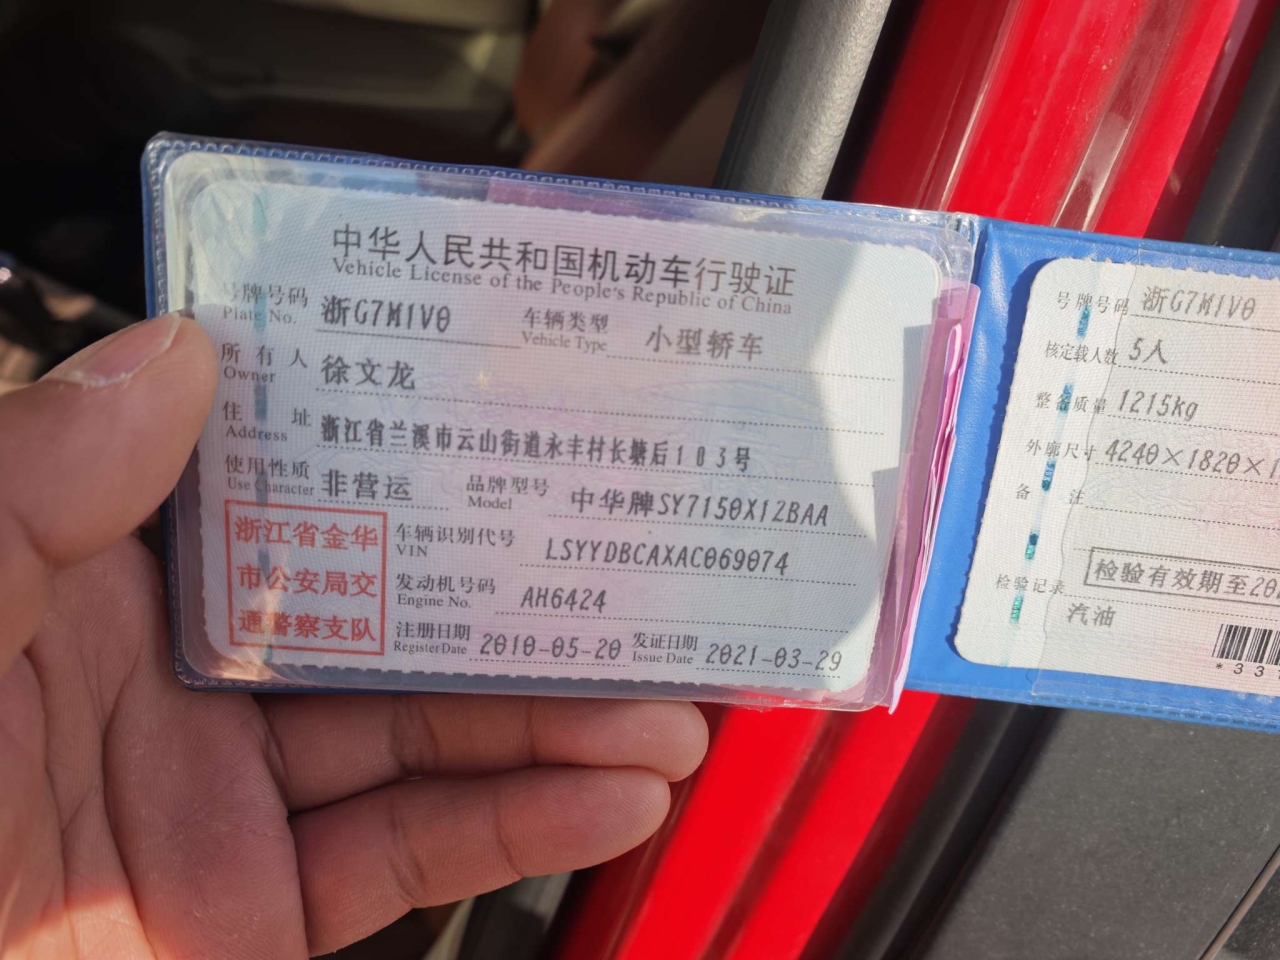 中华人民共和国机动车行驶证
Vehicle License of the People's Republic of China
号牌号码 浙G7M1V0 车辆类型 小型轿车
Plate No. Vehicle Type
所有人 徐文龙
Owner
住址 浙江省兰溪市云山街道永丰村长塘后103号
Address
使用性质 非营运 品牌型号 中华牌SY7150X12BAA
Use Character Model
浙江省金华
市公安局交
通警察支队
车辆识别代号 LSYYDBCAXAC069074
VIN
发动机号码 AH6424
Engine No.
注册日期 2010-05-20 发证日期 2021-03-29
Register Date Issue Date
号牌号码 浙G7M1V0
核定载人数 5人
整备质量 1215kg
外廓尺寸 4240×1820×1
备注
检验有效期至20
检验记录
汽油
*33